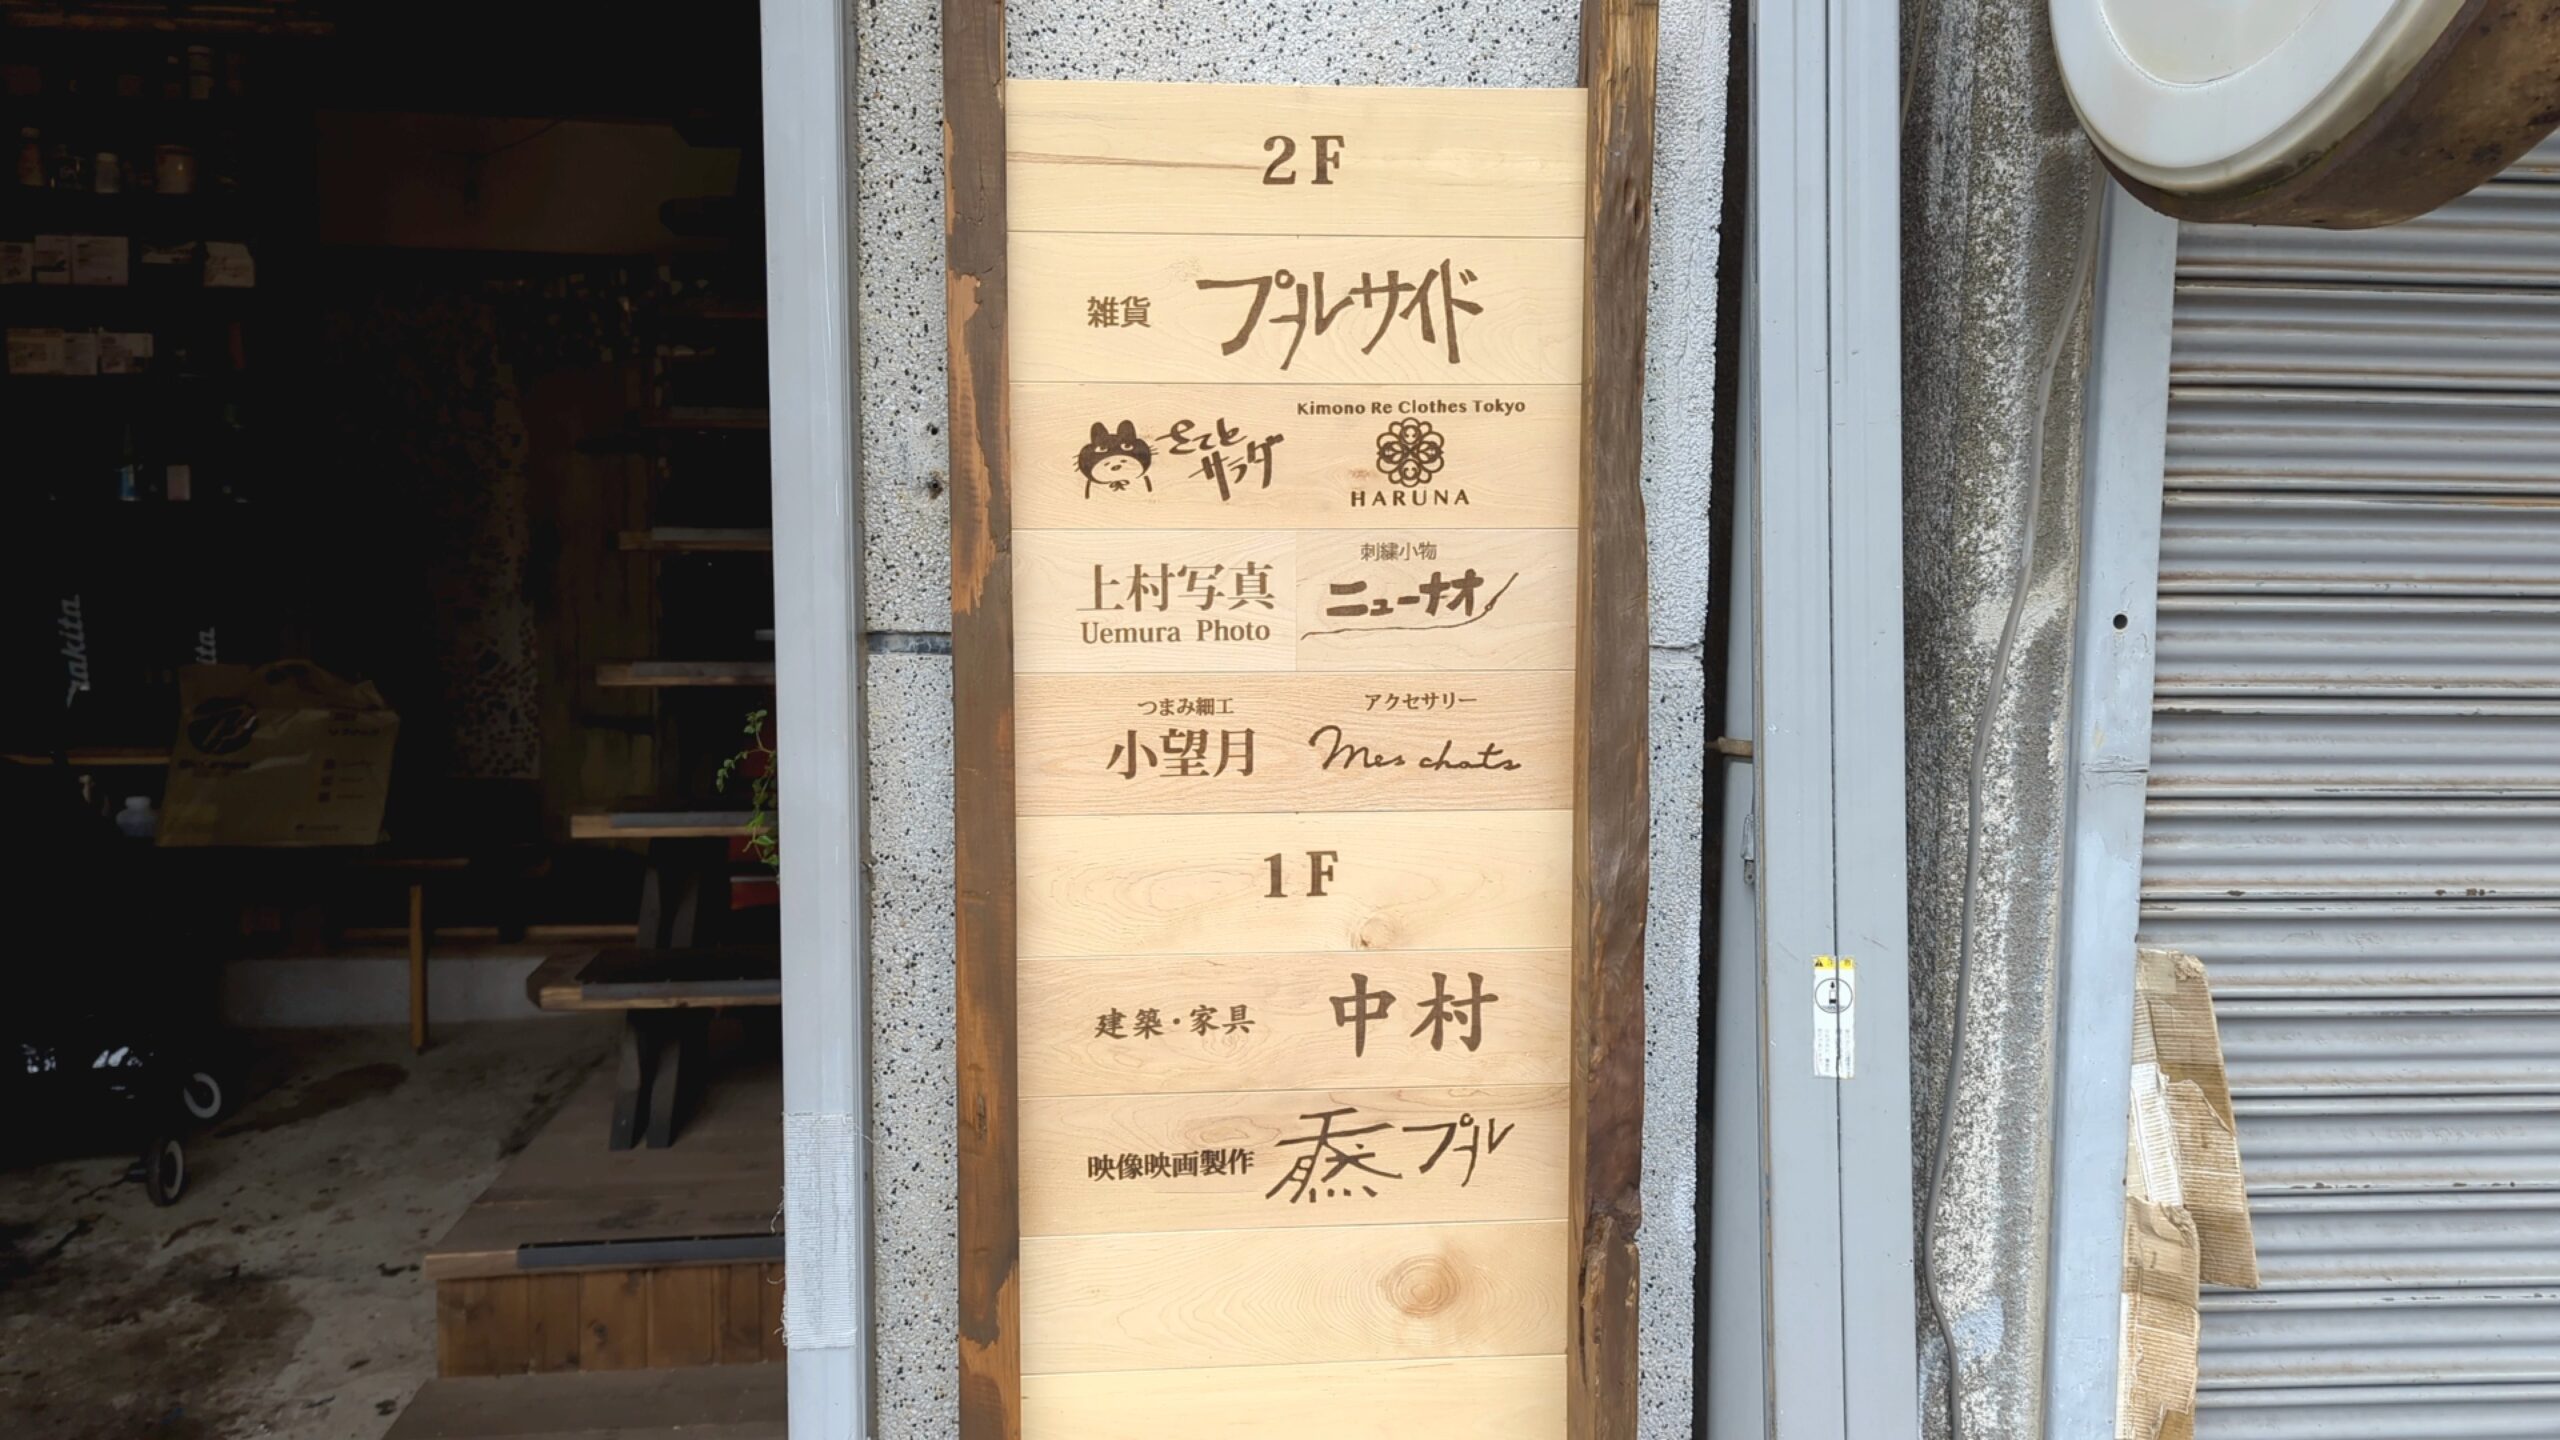 2F
雑貨 プールサイド
さてと
サラダ
Kimono Re Clothes Tokyo
HARUNA
上村写真
Uemura Photo
刺繍小物
ニューナオ
つまみ細工
小望月
アクセサリー
Mes chats
1F
建築・家具 中村
映像映画製作 プール
makita